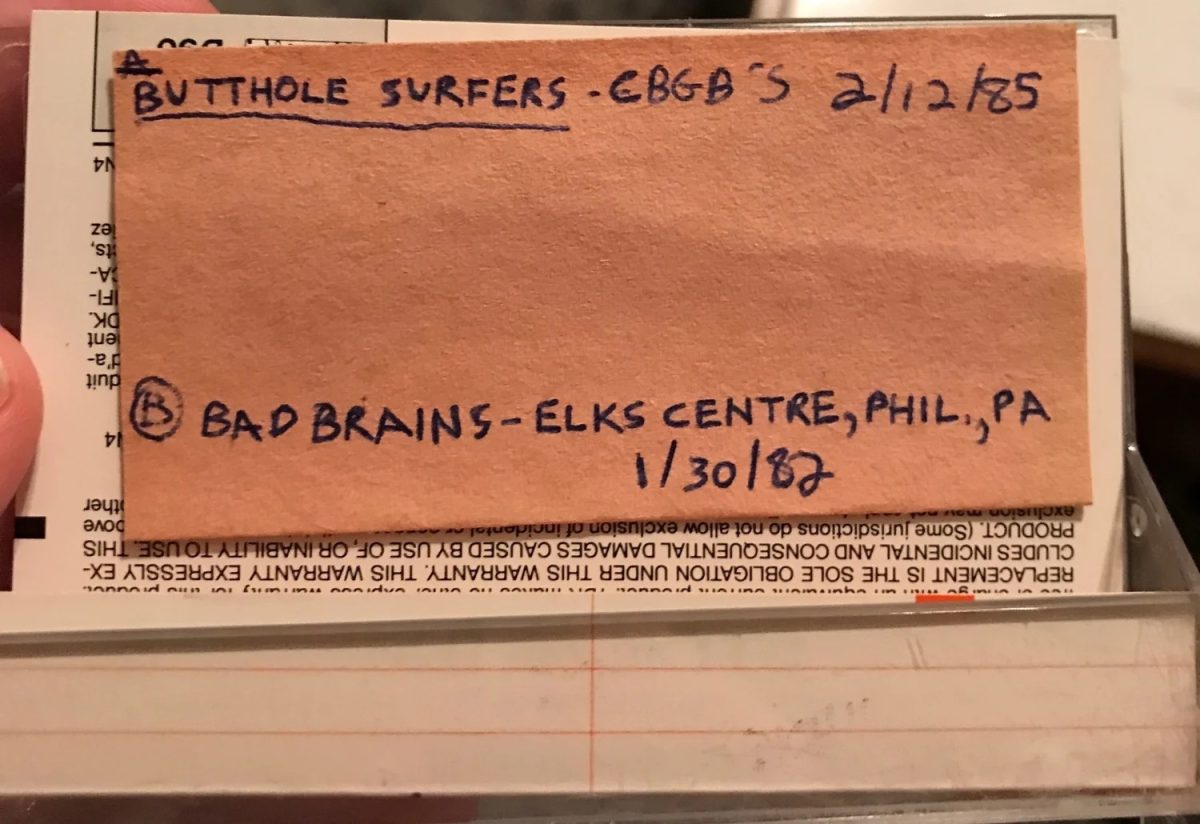 A
BUTTHOLE SURFERS - CBGB'S 2/12/85
B BAD BRAINS - ELKS CENTRE, PHIL., PA
1/30/82
D90
N4
iez
cts,
-CA
IFI-
DK.
ment
d'a-
duit
N4
other
bove
REPLACEMENT IS THE SOLE OBLIGATION UNDER THIS WARRANTY. THIS WARRANTY EXPRESSLY EX-
CLUDES INCIDENTAL AND CONSEQUENTIAL DAMAGES CAUSED BY USE OF, OR INABILITY TO USE, THIS
PRODUCT. (Some jurisdictions do not allow exclusion of incidental
exclusion may not